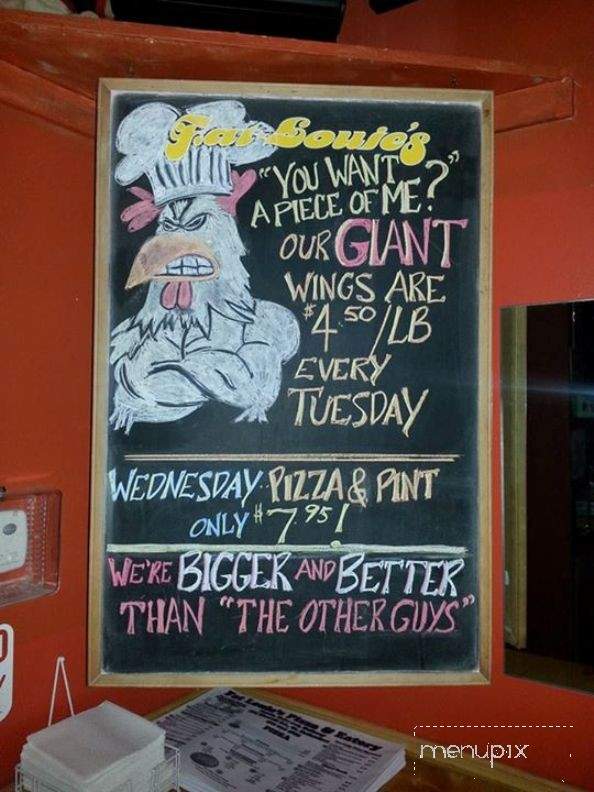 Fat Louie's
"YOU WANT
A PIECE OF ME?"
OUR GIANT
WINGS ARE
$4.50/LB
EVERY
TUESDAY
WEDNESDAY: PIZZA & PINT
ONLY $7.95!
WE'RE BIGGER AND BETTER
THAN "THE OTHER GUYS"
Fat Louie's Pizza & Eatery
menupix